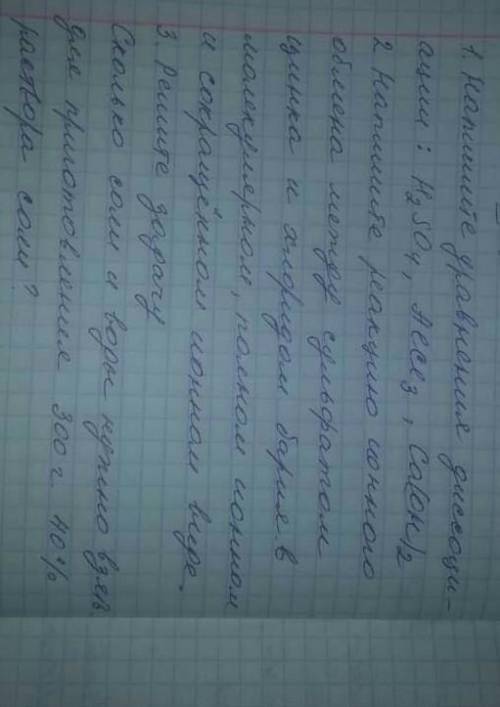 1. Напишите уравнения диссоци-
ации: H₂SO₄, AlCl₃, Ca(OH)₂
2 Напишите реакцию ионного
обмена между сульфатом
цинка и хлоридом бария в
молекулярном, полном ионном
и сокращённом ионном виде.
3. Решите задачу
Сколько соли и воды нужно взять
для приготовления 300 г 40%
раствора соли?